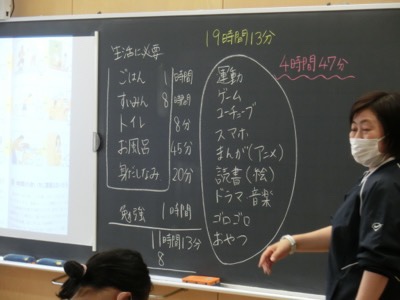 19時間13分
4時間47分
生活に必要
ごはん 1時間
すいみん 8時間
トイレ 8分
お風呂 45分
身だしなみ 20分
勉強 1時間
11時間13分
8
運動
ゲーム
ユーチューブ
スマホ
まんが(アニメ)
読書(絵)
ドラマ 音楽
ゴロゴロ
おやつ